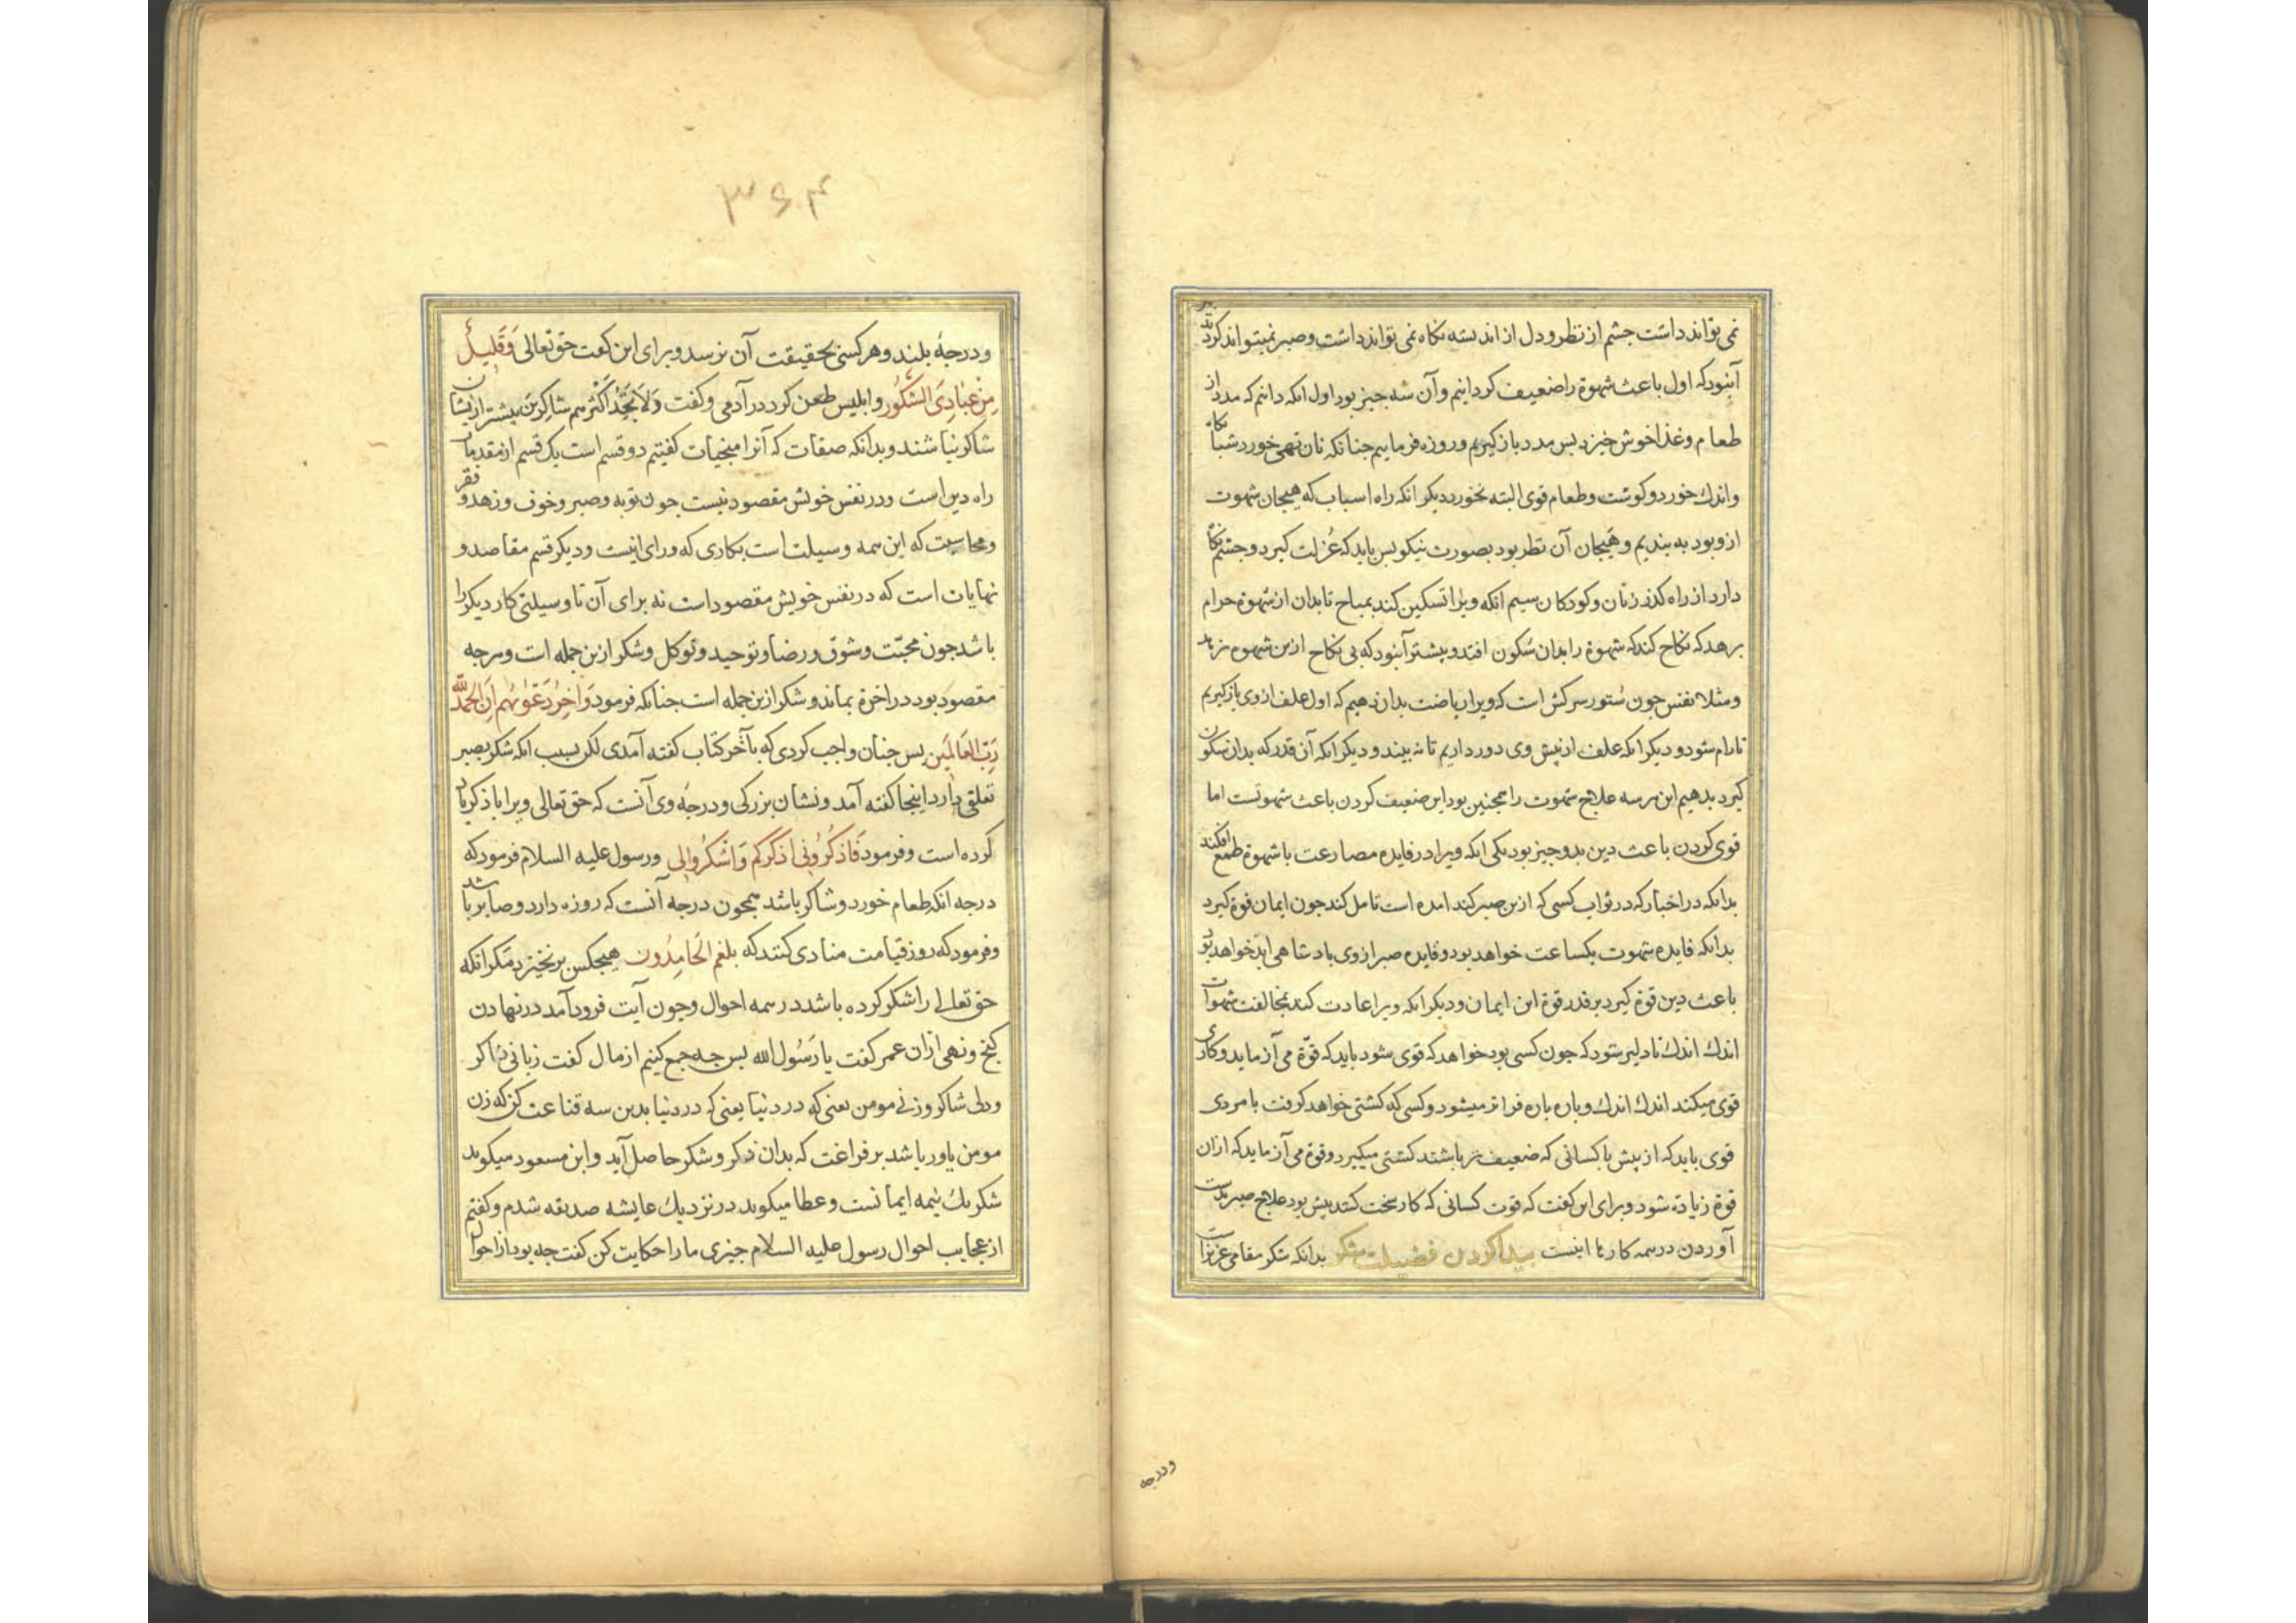 نمی تواند داشت چشم از نظر و دل از اندیشه نکاه نمی تواند داشت و صبر نمیتواند کرد
آنبود که اول باعث شهوة را ضعیف کردانیم و آن سه جیز بود اول انکه دانیم که مدد از
طعام و غذا خوش خیزد بس مدد باز کیریم و روزه فرماییم جنانکه نان تهی خورد شبانکاه
و اندك خورد و کوشت و طعام قوی البته نخورد دیکر انکه راه اسباب که هیجان شهوت
ازو بود به بندیم و هیجان آن نظر بود بصورت نیکو بس باید که عُزلت کیرد و چشم نکاه
دارد از راه کذر زنان و کودکان سیم انکه ویرا تسکین کند بمباح تا بدان از شهوة حرام
برهد که نکاح کند که شهوة را بدان سُکون افتد و بیشتر آنبود که بی نکاح ازین شهوه نرهد
و مثلا نفس جون ستور سرکش است که ویرا ریاضت بدان دهیم که اول علف ازوی باز کیریم
تا رام شود و دیکر انکه علف از پیش وی دور داریم تا نه بیند و دیکر انکه آن قدر که بدان سکون
کیرد بدهیم این هر سه علاج شهوت را همجنین بود این ضعیف کردن باعث شهوتست اما
قوی کردن باعث دین بدو جیز بود یکی انکه ویرا در فایده مصارعت با شهوة طمع افکند
بدانکه در اخبار که در ثواب کسی که ازین صبر کند امده است تامل کند جون ایمان قوة کیرد
بدانکه فایده شهوت یکساعت خواهد بود و فایده صبر ازوی بادشاهی ابد خواهد بود
باعث دین قوة کیرد بر قدر قوة این ایمان و دیکر انکه ویرا عادت کند بمخالفت شهوات
اندك اندك تا دلیر شود که جون کسی بود خواهد که قوی شود باید که قوّة می آزماید و کاری
قوی میکند اندك اندك و باره باره فراتر میشود و کسی که کشتی خواهد کرفت با مردی
قوی باید که از پیش با کسانی که ضعیف تر باشند کشتی میکیرد و قوة می آزماید که ازان
قوة زیادة شود و برای این کفت که قوت کسانی که کار سخت کنند بیش بود علاج صبر بدست
آوردن در همه کارها اینست بیدا کردن فضیلت شکر بدانکه شکر مقامی عزیزاست
ودرجه
۳۶۴
و درجهٔ بلند و هر کسی بحقیقت آن نرسد و برای این کفت حق تعالی وَقَلِیلٌ
مِنْ عِبَادِیَ الشَّکُورُ و ابلیس طعن کرد در آدمی و کفت وَلَا تَجِدُ أَکْثَرَهُم شَاکِرِینَ بیشتر ازیشان
شاکر نباشند و بدانکه صفات که آنرا منجیات کفتیم دو قسم است یك قسم از مقدمات
راه دین است و در نفس خویش مقصود نیست جون توبه و صبر و خوف و زهد و فقر
و محاسبت که این همه وسیلت است بکاری که ورای اینست و دیکر قسم مقاصد و
نهایات است که در نفس خویش مقصود است نه برای آن تا وسیلتی کار دیکر را
باشد جون محبّت و شوق و رضا و توحید و توکل و شکر ازین جمله است و هر جه
مقصود بود در اخرة بماند و شکر ازین جمله است جنانکه فرمود وَاخِرُ دَعْوٰیهُم اَنِ الحَمدُ لِلّٰه
رَبِّ العَالَمِین بس جنان واجب کردی که بآخر کتاب کفته آمدی لکن بسبب انکه شکر بصبر
تعلقی دارد اینجا کفته آمد و نشان بزرکی و درجهٔ وی آنست که حق تعالی ویرا با ذکر یاد
کرده است و فرمود فَاذکُرُونِی اَذکُرکُم وَاشکُرُوالِی و رسول علیه السلام فرمود که
درجه انکه طعام خورد و شاکر باشد همجون درجه آنست که روزه دارد و صابر باشد
و فرمود که روز قیامت منادی کنند که بلغم الحَامِدُون هیجکس برنخیزد مکر انکه
حق تعالی را شکر کرده باشد در همه احوال و جون آیت فرود آمد در نهادن
کنج و نهی ازان عمر کفت یا رَسُول الله بس جه جمع کنیم از مال کفت زبانی ذاکر
و دلی شاکر و زنی مومن یعنی که در دنیا یعنی که در دنیا بدین سه قناعت کن که زن
مومن یاور باشد بر فراغت که بدان ذکر و شکر حاصل آید و ابن مسعود میکوید
شکر یك نیمه ایمانست و عطا میکوید در نزدیك عایشه صدیقه شدم و کفتم
از عجایب احوال رسول علیه السلام جیزی مارا حکایت کن کفت جه بود از احوال